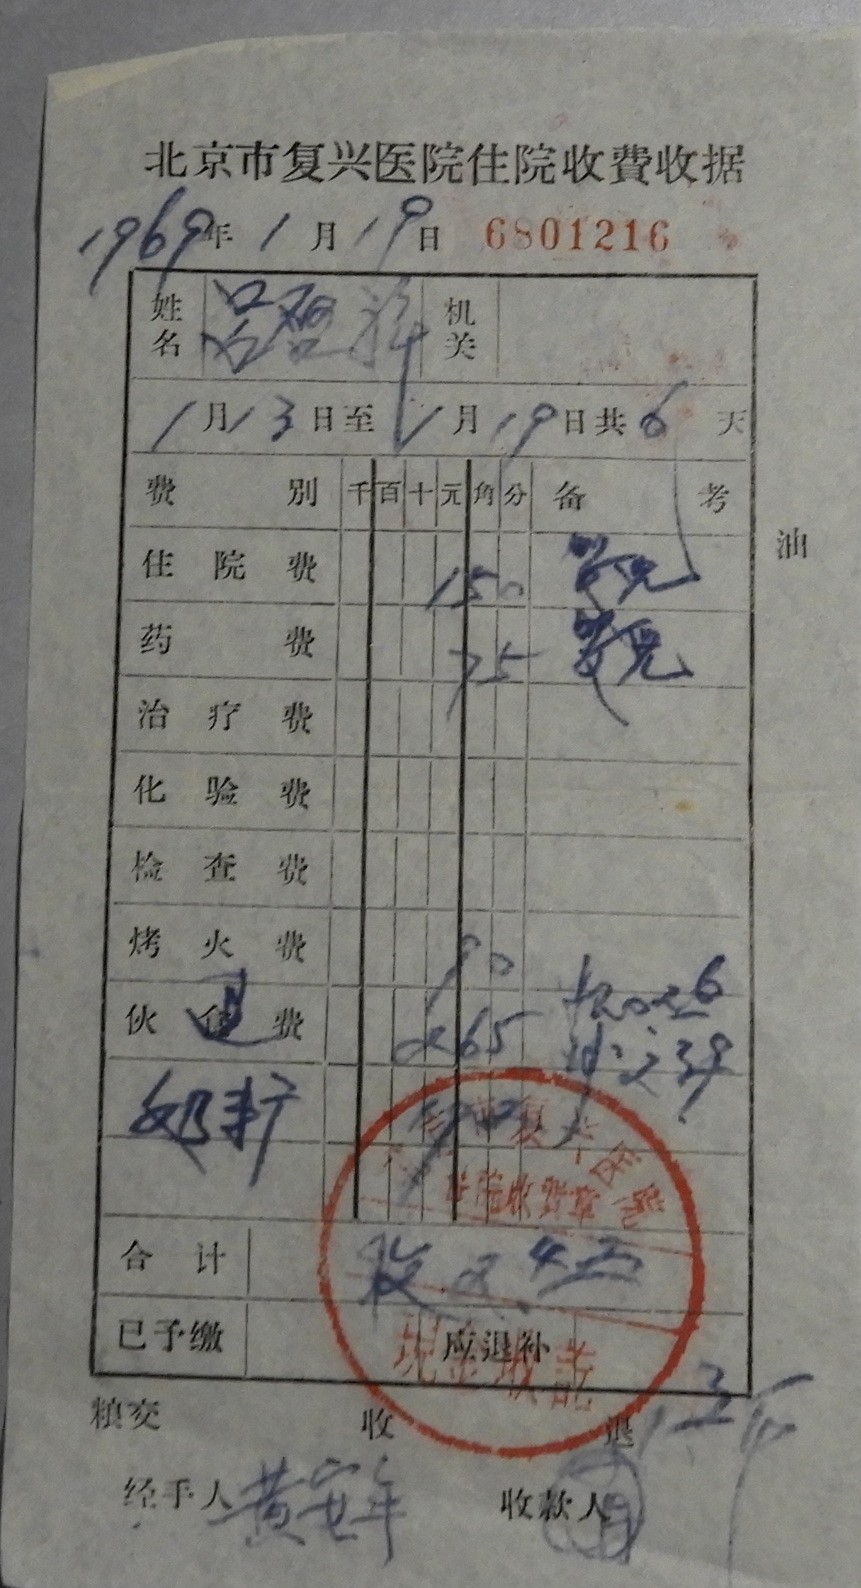 北京市复兴医院住院收費收据
1969年1月19日 6801216
姓名 吕 机关
1月13日至1月19日共6天
费别 千 百 十 元 角 分 备考
油
住院费 150
药费 75
治疗费
化验费
检查费
烤火费 90
伙食费 265
复兴医院
住院收费章
合计 收
已予缴 应退补
现金收讫
粮交 收 退
经手人 黄安年 收款人